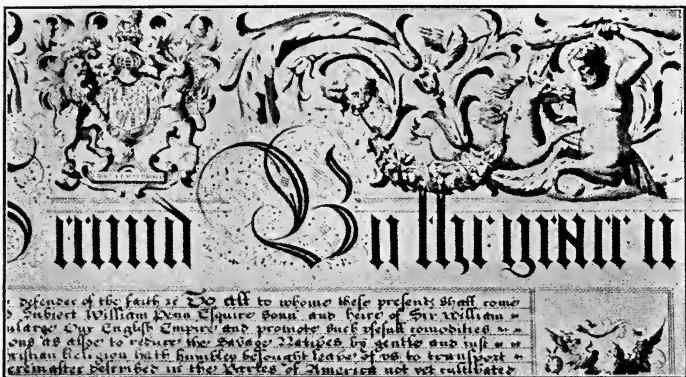 econd By the grace o
defender of the faith &c To all to whome these presents shall come
Subiect William Penn Esquire sonn and heire of Sir William
nlarge Our English Empire and promote such usefull comodities
ons as alsoe to reduce the Savage Natives by gentle and iust
ristian Religion hath humbley besought leave of vs to transport
ereinafter described in the Partes of America not yet cultivated